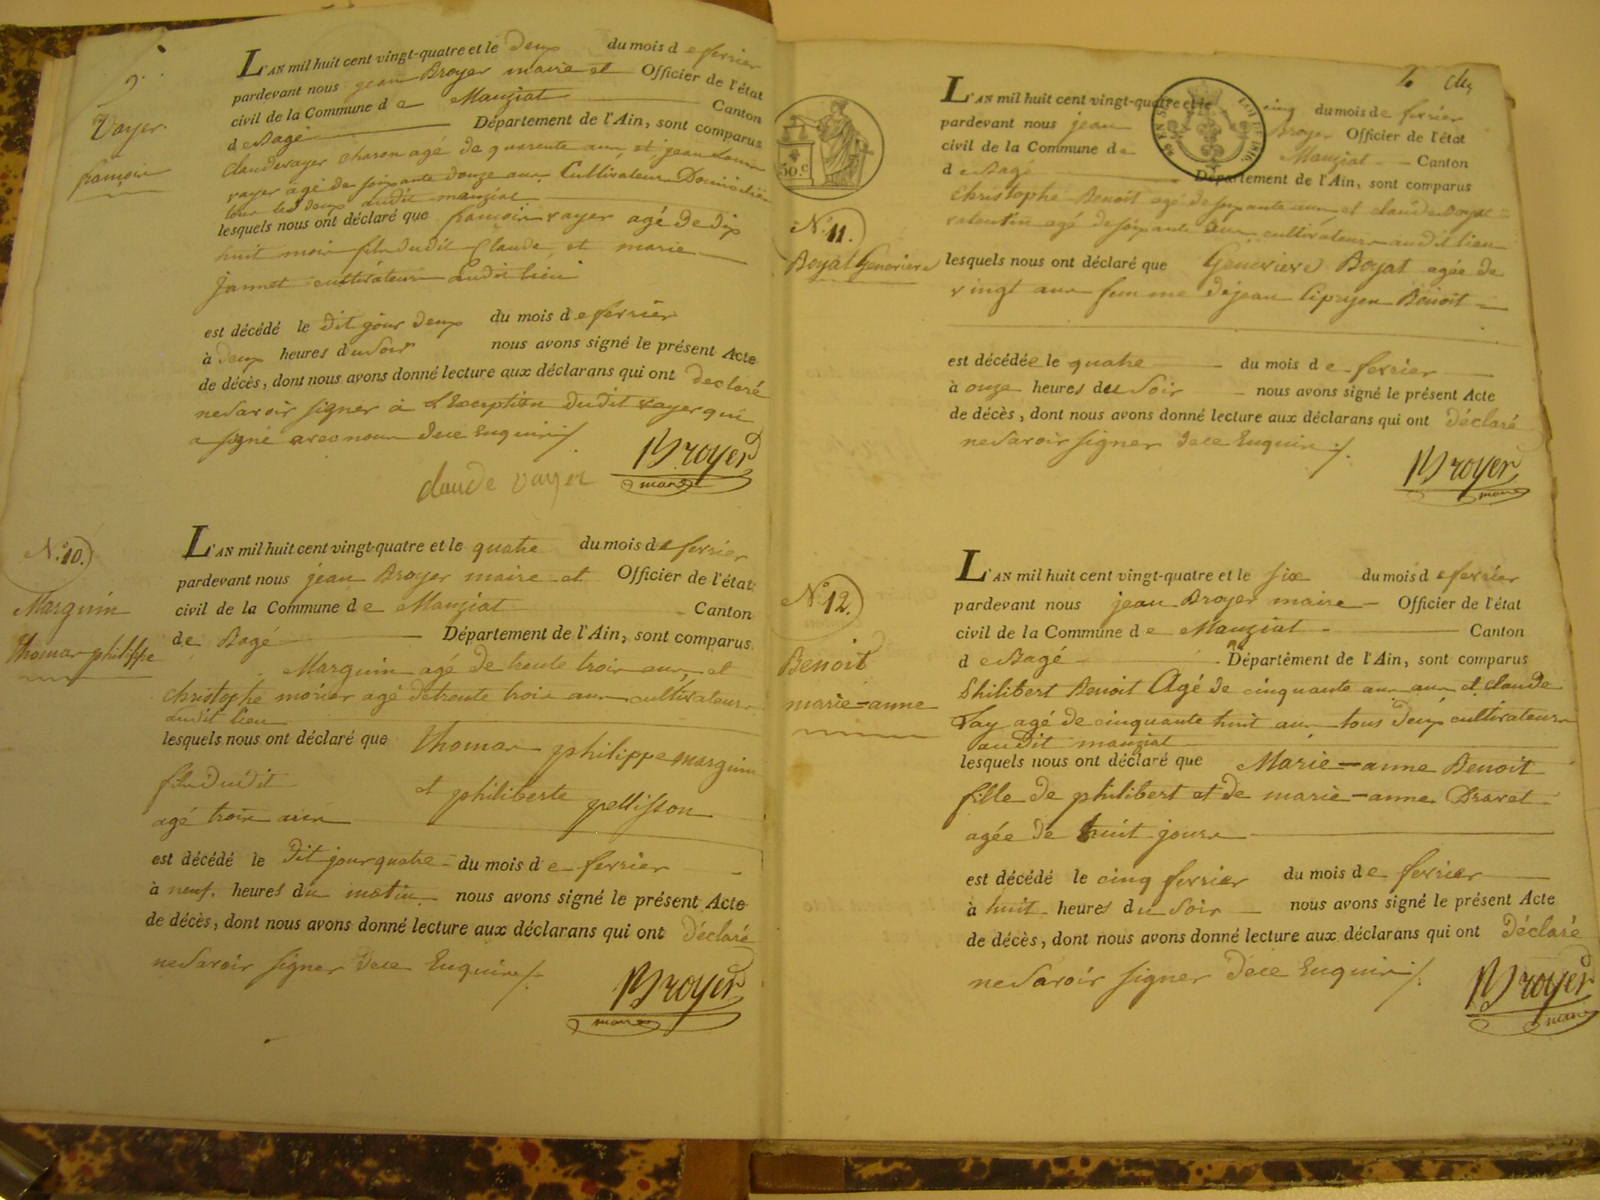 9.
Vayer
françois
L'AN mil huit cent vingt-quatre et le deux du mois de fevrier
pardevant nous jean Broyer maire et Officier de l'état
civil de la Commune de Manziat Canton
de Bagé Département de l'Ain, sont comparus
claude vayer charon agé de quarente ans, et jean Louis
vayer agé de soixante douze ans Cultivateurs Domiciliés
tous les deux audit manziat
lesquels nous ont déclaré que françois vayer agé de dix
huit mois fils dudit Claude, et marie
Jannet cultivateurs audit lieu
est décédé le dit jour deux du mois de fevrier
à deux heures du soir nous avons signé le présent Acte
de décès, dont nous avons donné lecture aux déclarans qui ont declaré
ne Savoir signer à l'Exception dudit vayer qui
a signé avec nous de ce Enquis ./.
claude vayer Broyer
maire
N.° 10.
Marguin
Thomas philippe
L'AN mil huit cent vingt-quatre et le quatre du mois de fevrier
pardevant nous jean Broyer maire et Officier de l'état
civil de la Commune de Manziat Canton
de Bagé Département de l'Ain, sont comparus
Marguin agé de trente trois ans, et
christophe morier agé de trente trois ans cultivateurs
audit lieu
lesquels nous ont déclaré que Thomas philippe marguin
fils dudit et philiberte pellisson
agé trois ans
est décédé le dit jour quatre du mois de fevrier
à neuf heures du matin nous avons signé le présent Acte
de décès, dont nous avons donné lecture aux déclarans qui ont déclaré
ne Savoir signer de ce Enquis ./.
Broyer
maire
50.c
N.° 11.
Boyat Genevieve
L'AN mil huit cent vingt-quatre et le cinq du mois de fevrier
pardevant nous jean Broyer Officier de l'état
civil de la Commune de Manziat Canton
de Bagé Département de l'Ain, sont comparus
Christophe Benoit agé de soixante ans et claude Boyat
valentin agé de soixante ans cultivateurs audit lieu
lesquels nous ont déclaré que Genevieve Boyat agée de
vingt ans femme de jean Ciprien Benoit
est décédée le quatre du mois de fevrier
à onze heures du Soir nous avons signé le présent Acte
de décès, dont nous avons donné lecture aux déclarans qui ont déclaré
ne Savoir signer de ce Enquis ./.
Broyer
maire
N.° 12.
Benoit
marie-anne
L'AN mil huit cent vingt-quatre et le six du mois de fevrier
pardevant nous jean Broyer maire Officier de l'état
civil de la Commune de Manziat Canton
de Bagé Département de l'Ain, sont comparus
Philibert Benoit Agé de cinquante ans et claude
Fay agé de cinquante huit ans tous deux cultivateurs
audit manziat
lesquels nous ont déclaré que Marie-anne Benoit
fille de philibert et de marie-anne Dravet
agée de huit jours
est décédé le cinq fevrier du mois de fevrier
à huit heures du Soir nous avons signé le présent Acte
de décès, dont nous avons donné lecture aux déclarans qui ont déclaré
ne Savoir signer de ce Enquis ./.
Broyer
maire